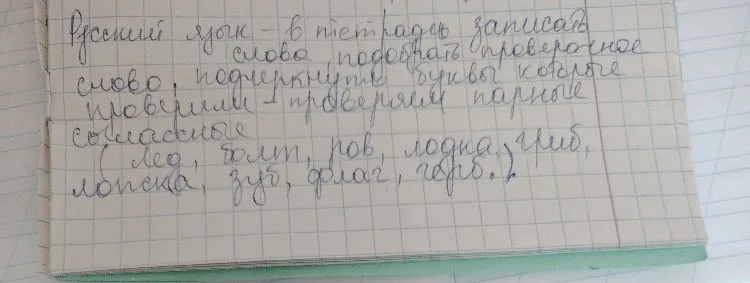 Русский язык - в тетрадь записать
слова, подобрать проверочное
слово, подчеркнуть буквы которые
проверили - проверяем парные
согласные
(Лёд, болт, ров, лодка, гриб,
лопска, зуб, флаг, герб.).